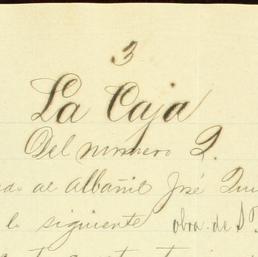 3
La Caja
Del numero 2.
al Albañil José
lo siguiente obra de